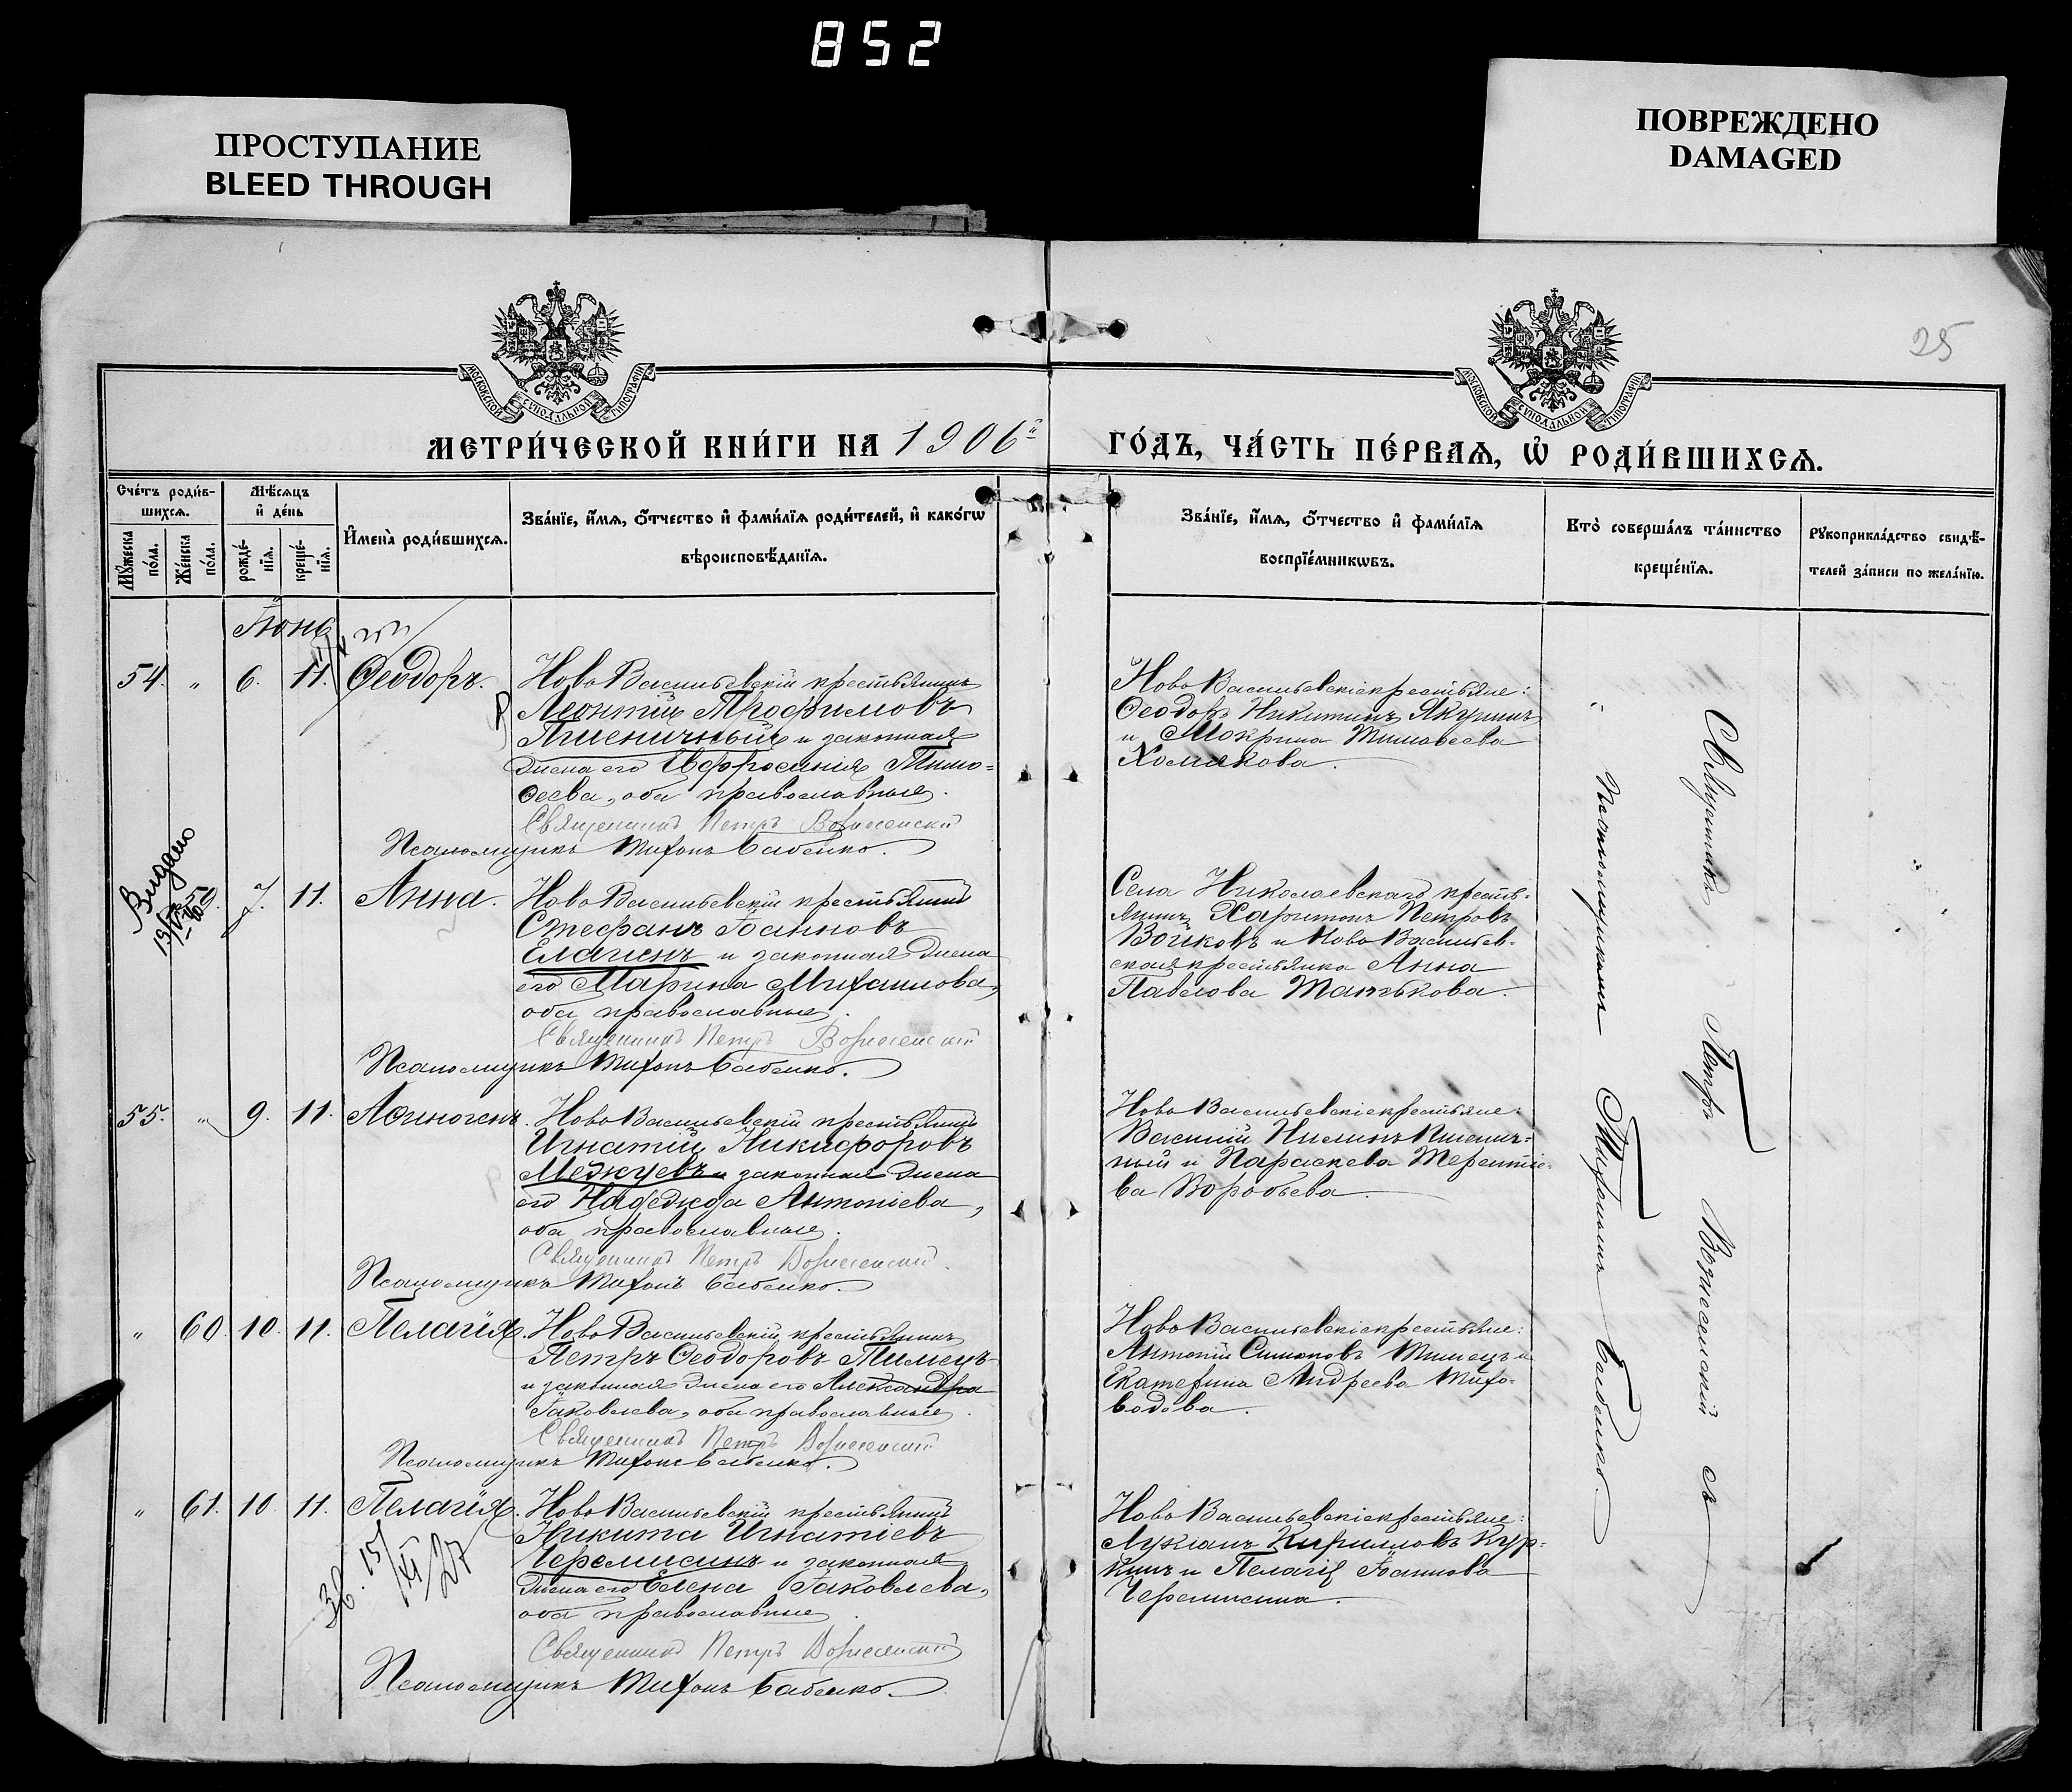 852
ПРОСТУПАНИЕ
BLEED THROUGH
ПОВРЕЖДЕНО
DAMAGED
25
МОСКОВСКОЙ СѴНОДАЛЬНОЙ ТИПОГРАФІИ
МОСКОВСКОЙ СѴНОДАЛЬНОЙ ТИПОГРАФІИ
МЕТРИ́ЧЕСКОЙ КНИ́ГИ НА 1906й ГО́ДЪ, ЧА́СТЬ ПЕ́РВАѦ, Ѡ҆ РОДИ́ВШИХСѦ.
Сче́тъ роди́в-
шихсѧ.
Мꙋ́жеска по́ла.
Же́нска по́ла.
Мѣ́сѧцъ
и҆ де́нь
рожде́-
нїѧ.
креще́-
нїѧ.
И҆мена̀ роди́вшихсѧ.
Зва́нїе, и҆́мѧ, ѻ҆́тчество и҆ фами́лїѧ роди́телей, и҆ како́гѡ
вѣроисповѣ́данїѧ.
Зва́нїе, и҆́мѧ, ѻ҆́тчество и҆ фами́лїѧ
воспрїе́мникѡвъ.
Кто̀ соверша́лъ та́инство
креще́нїѧ.
Рꙋкоприкла́дство свидѣ́-
телей за́писи по жела́нїю.
Іюнь
54. " 6. 11. Ѳеодоръ.
НовоВасильевскій крестьянинъ
Леонтій Трофимовъ
Пшеничный и законная
жена его Евфросинія Тимо=
ѳеева, оба православные.
Священникъ Петръ Вознесенскій
Псаломщикъ Тихонъ Бабенко.
НовоВасильевскіе крестьяне:
Ѳеодоръ Никитинъ Якунинъ
и Мокрина Тимоѳеева
Хомякова.
Выдано
7. 11. Анна.
НовоВасильевскій крестьянинъ
Стефанъ Іоанновъ
Елагинъ и законная жена
его Марина Михаилова,
оба православные.
Священникъ Петръ Вознесенскій
Псаломщикъ Тихонъ Бабенко.
Села Николаевскаго кресть-
янинъ Харитонъ Петровъ
Войковъ и НовоВасильев-
ская крестьянка Анна
Павлова Танькова.
55. " 9. 11. Аѳиногенъ.
НовоВасильевскій крестьянинъ
Игнатій Никифоровъ
Межуевъ и законная жена
его Надежда Антоніева,
оба православные.
Священникъ Петръ Вознесенскій
Псаломщикъ Тихонъ Бабенко.
НовоВасильевскіе крестьяне:
Василій Ниловъ Пшенич=
ный и Параскева Терентіе-
ва Воробьева.
" 60. 10. 11. Пелагія.
НовоВасильевскій крестьянинъ
Петръ Ѳеодоровъ Тимецъ
и законная жена его Александра
Іаковлева, оба православные.
Священникъ Петръ Вознесенскій
Псаломщикъ Тихонъ Бабенко.
НовоВасильевскіе крестьяне:
Антоній Симоновъ Тимецъ и
Екатерина Андреева Тихо-
водова.
" 61. 10. 11. Пелагія.
15/XI/27
НовоВасильевскій крестьянинъ
Никита Игнатіевъ
Черемисинъ и законная
жена его Елена Іаковлева,
оба православные.
Священникъ Петръ Вознесенскій
Псаломщикъ Тихонъ Бабенко.
НовоВасильевскіе крестьяне:
Лукіанъ Кирилловъ Кур-
кинъ и Пелагія Іоаннова
Черемисина.
Священникъ Петръ Вознесенскій съ
псаломщикомъ Тихономъ Бабенко